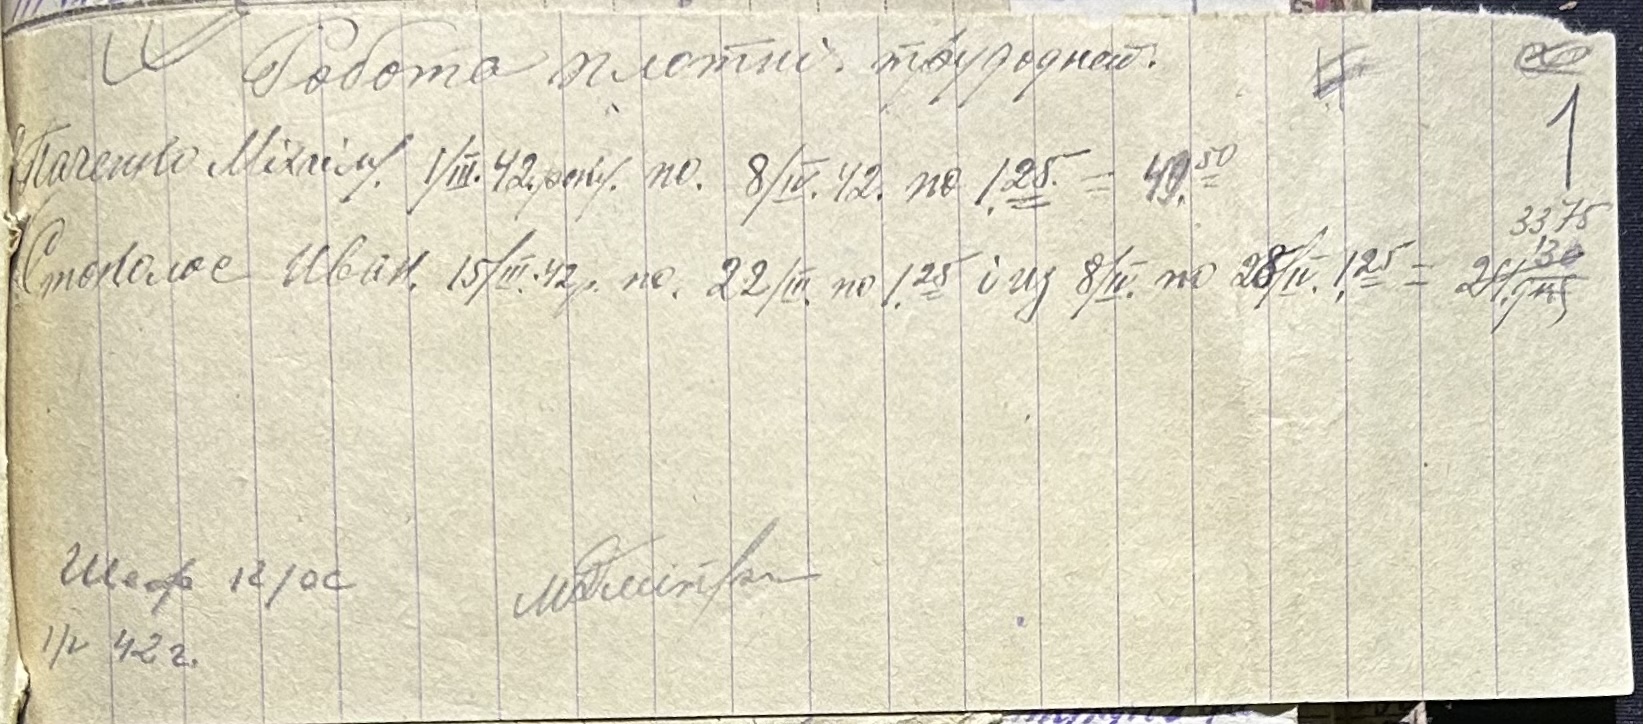 Робота плотні. трудодней.
1
Паченко Міхаіл. 1/III.42 року. по. 8/IV.42. по 1.25 = 49.50
3375
Стокалос Иван. 15/III.42р. по. 22/III. по 1.25 і из 8/IV. по 28/IV. 1.25 = 130
Шеф
1/V 42 г.